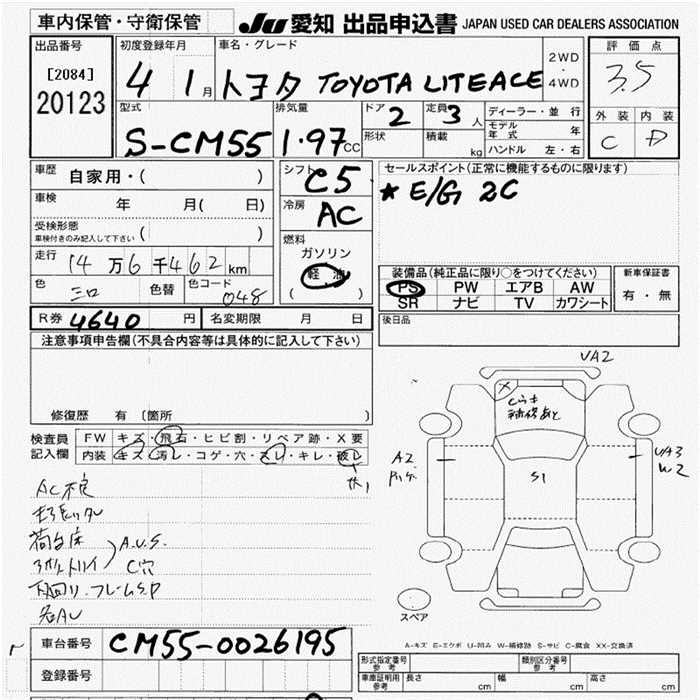 車内保管・守衛保管
JU 愛知 出品申込書 JAPAN USED CAR DEALERS ASSOCIATION
出品番号
[2084]
20123
初度登録年月
4 1 月
車名・グレード
トヨタ TOYOTA LITEACE
2WD
・
4WD
評価点
3.5
外装 内装
C D
型式
S-CM55
排気量
1.97 CC
ドア 2
定員 3 人
形状
積載 kg
ディーラー・並行
モデル年式 年
ハンドル 左・右
車歴 自家用・( )
車検 年 月( 日)
受検形態
車検付きのみ記入して下さい ( )
走行 14万6千462 km
色 色替 色コード 048
シフト C5
冷房 AC
燃料
ガソリン
軽油
( )
セールスポイント(正常に機能するものに限ります)
★ E/G 2C
装備品(純正品に限り○をつけてください)
PS PW エアB AW
SR ナビ TV カワシート
新車保証書
有・無
後日品
R券 4640 円 名変期限 月 日
注意事項申告欄(不具合内容等は具体的に記入して下さい)
修復歴 有 〔箇所 〕
検査員
記入欄
FW キズ・飛石・ヒビ割・リペア跡・X要
内装 キズ・汚レ・コゲ・穴・スレ・キレ・破レ
AC不良
荷台床
A.U.S.
C穴
下回リ・フレームS.P
各AU
UA2
X
補修あと
A2
S1
UA3
W2
スペア
A-キズ E-エクボ U-凹み W-補修跡 S-サビ C-腐食 XX-交換済
車台番号 CM55-0026195
登録番号
型式指定番号
参考
類別区分番号
参考
車庫証明用
参考
長さ cm 幅 cm 高さ cm